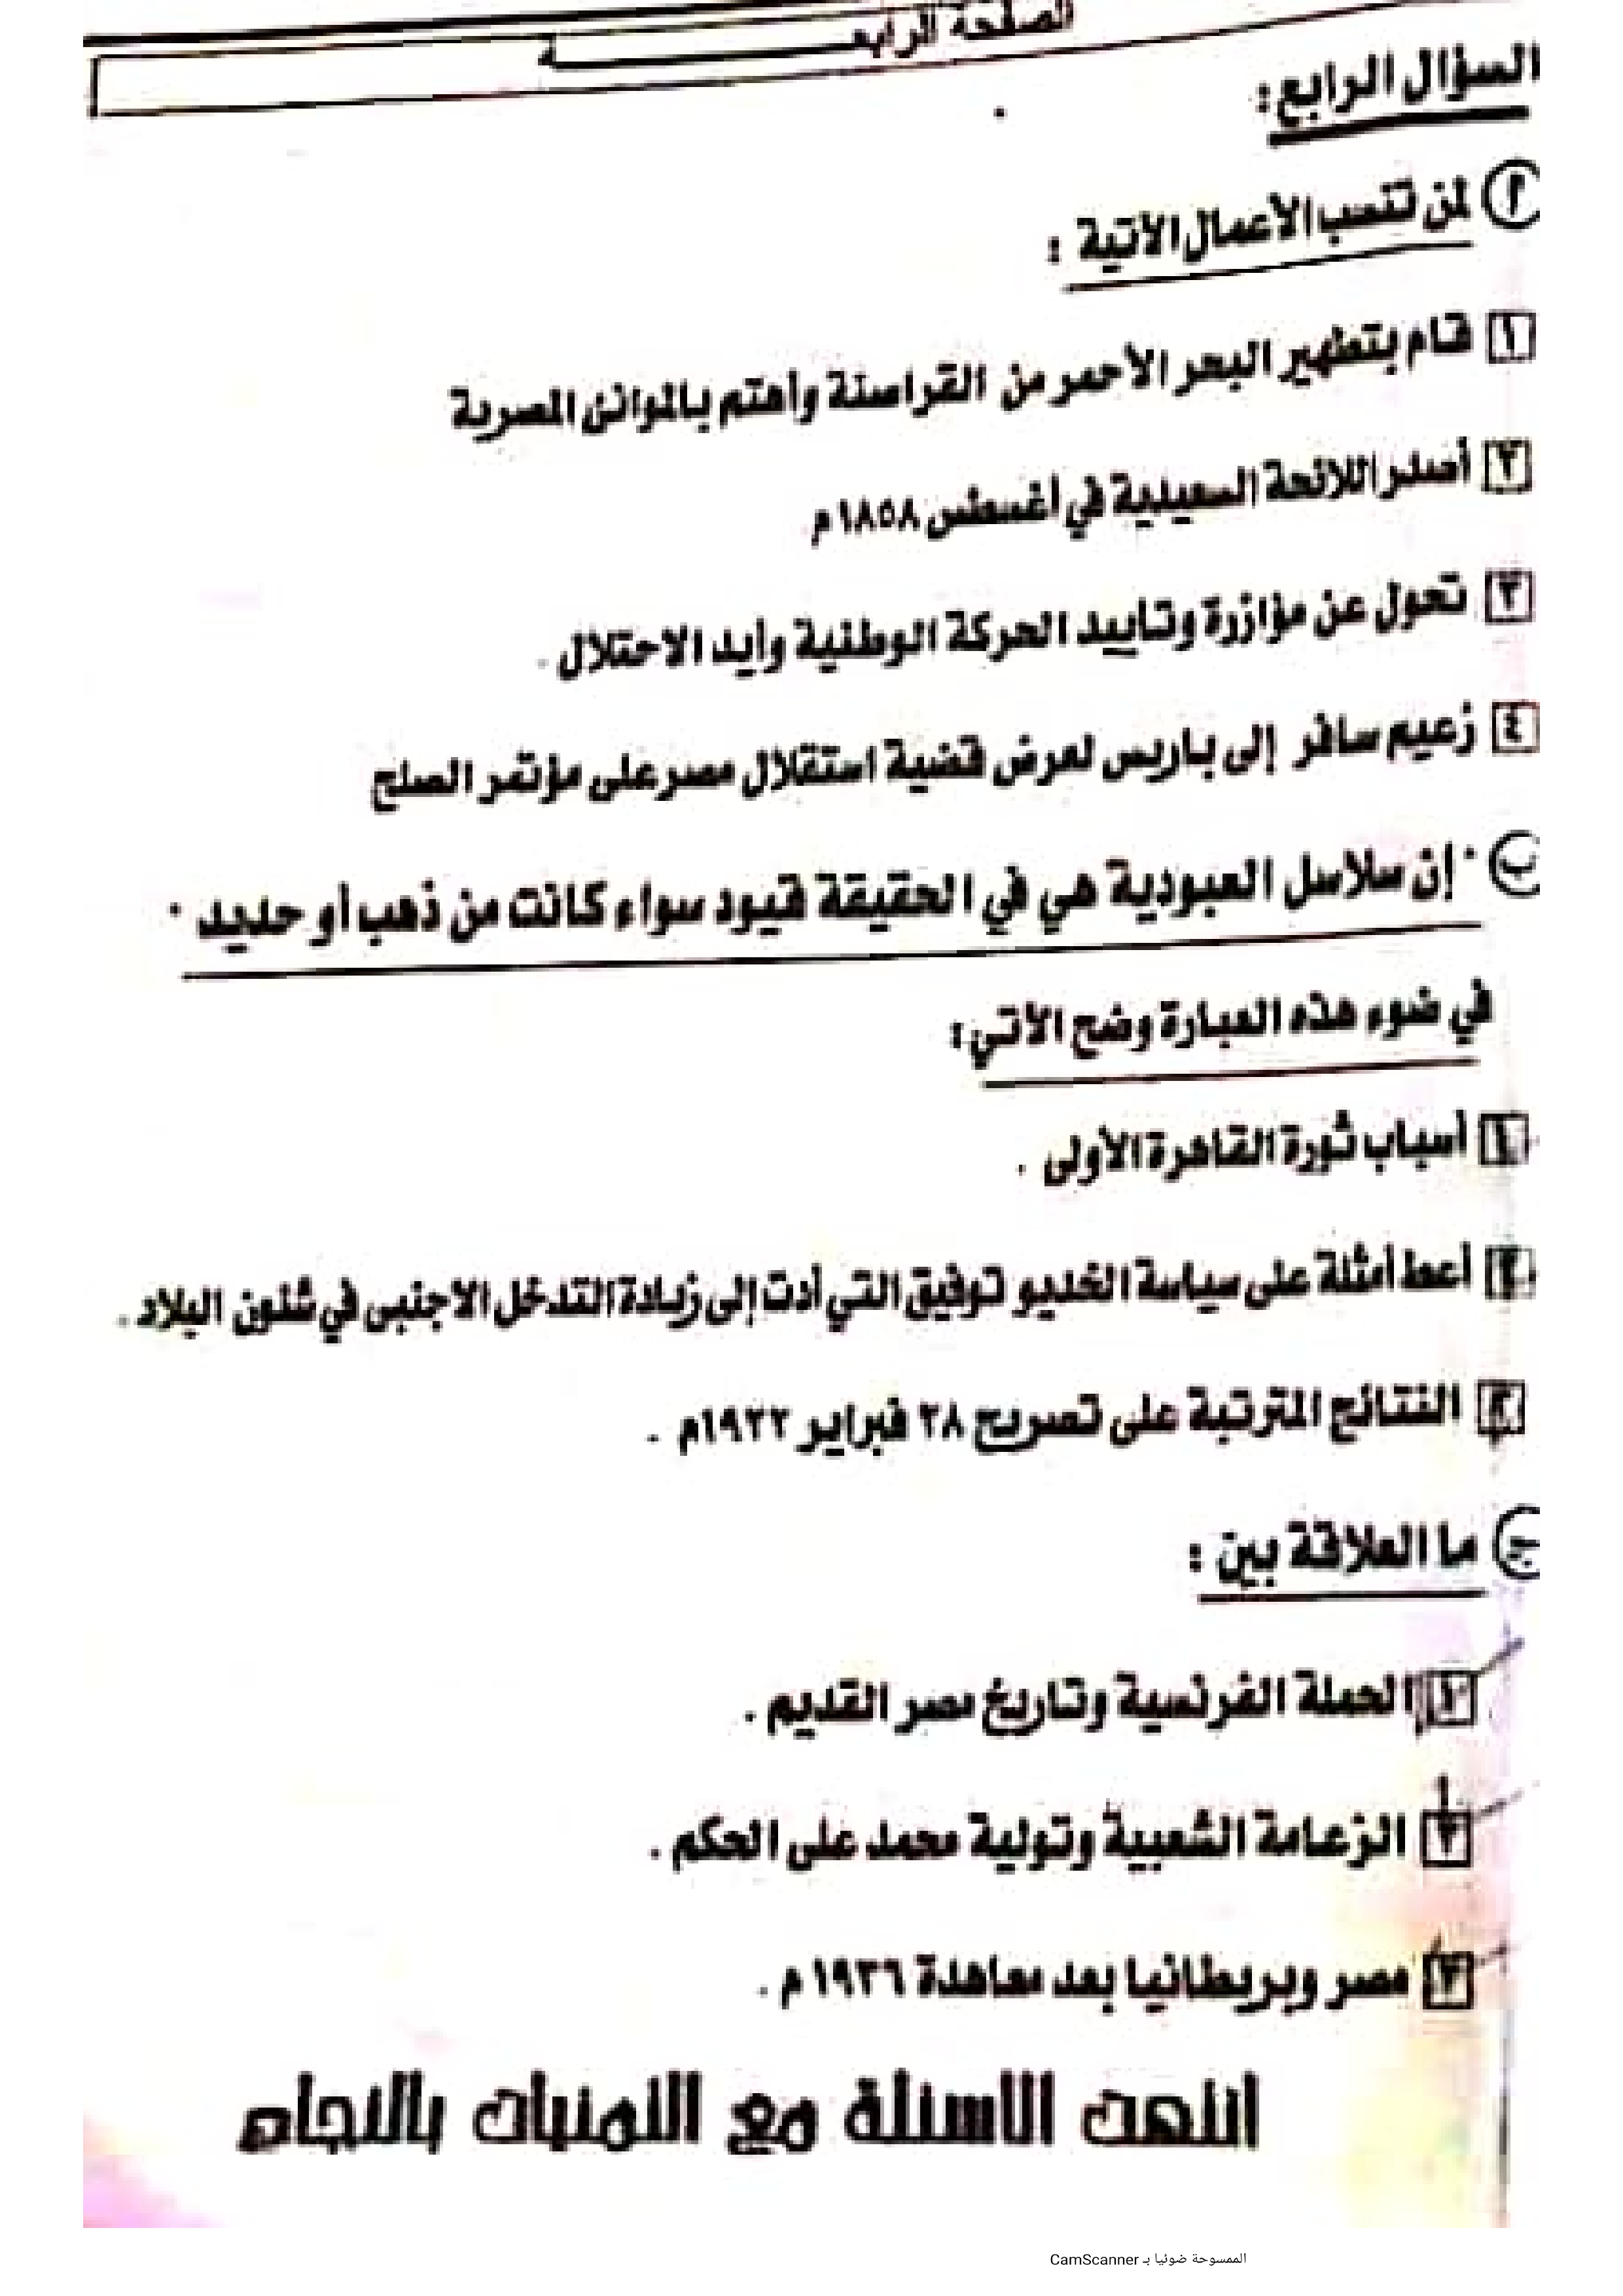 الصفحة الرابعـــــــــة
السؤال الرابع:
أ لمن تنسب الأعمال الآتية :
١ قام بتطهير البحر الأحمر من القراصنة وأهتم بالموانئ المصرية
٢ أصدر اللائحة السعيدية في أغسطس ١٨٥٨م
٣ تحول عن مؤازرة وتأييد الحركة الوطنية وأيد الاحتلال .
٤ زعيم سافر إلى باريس لعرض قضية استقلال مصر على مؤتمر الصلح
ب " إن سلاسل العبودية هي في الحقيقة قيود سواء كانت من ذهب أو حديد "
في ضوء هذه العبارة وضح الآتي :
١ أسباب ثورة القاهرة الأولى .
٢ أعط أمثلة على سياسة الخديو توفيق التي أدت إلى زيادة التدخل الاجنبى في شئون البلاد .
٣ النتائج المترتبة على تصريح ٢٨ فبراير ١٩٢٢م .
ج ما العلاقة بين :
١ الحملة الفرنسية وتاريخ مصر القديم .
٢ الزعامة الشعبية وتولية محمد على الحكم .
٣ مصر وبريطانيا بعد معاهدة ١٩٣٦ م .
انتهت الأسئلة مع التمنيات بالنجاح
الممسوحة ضوئيا بـ CamScanner